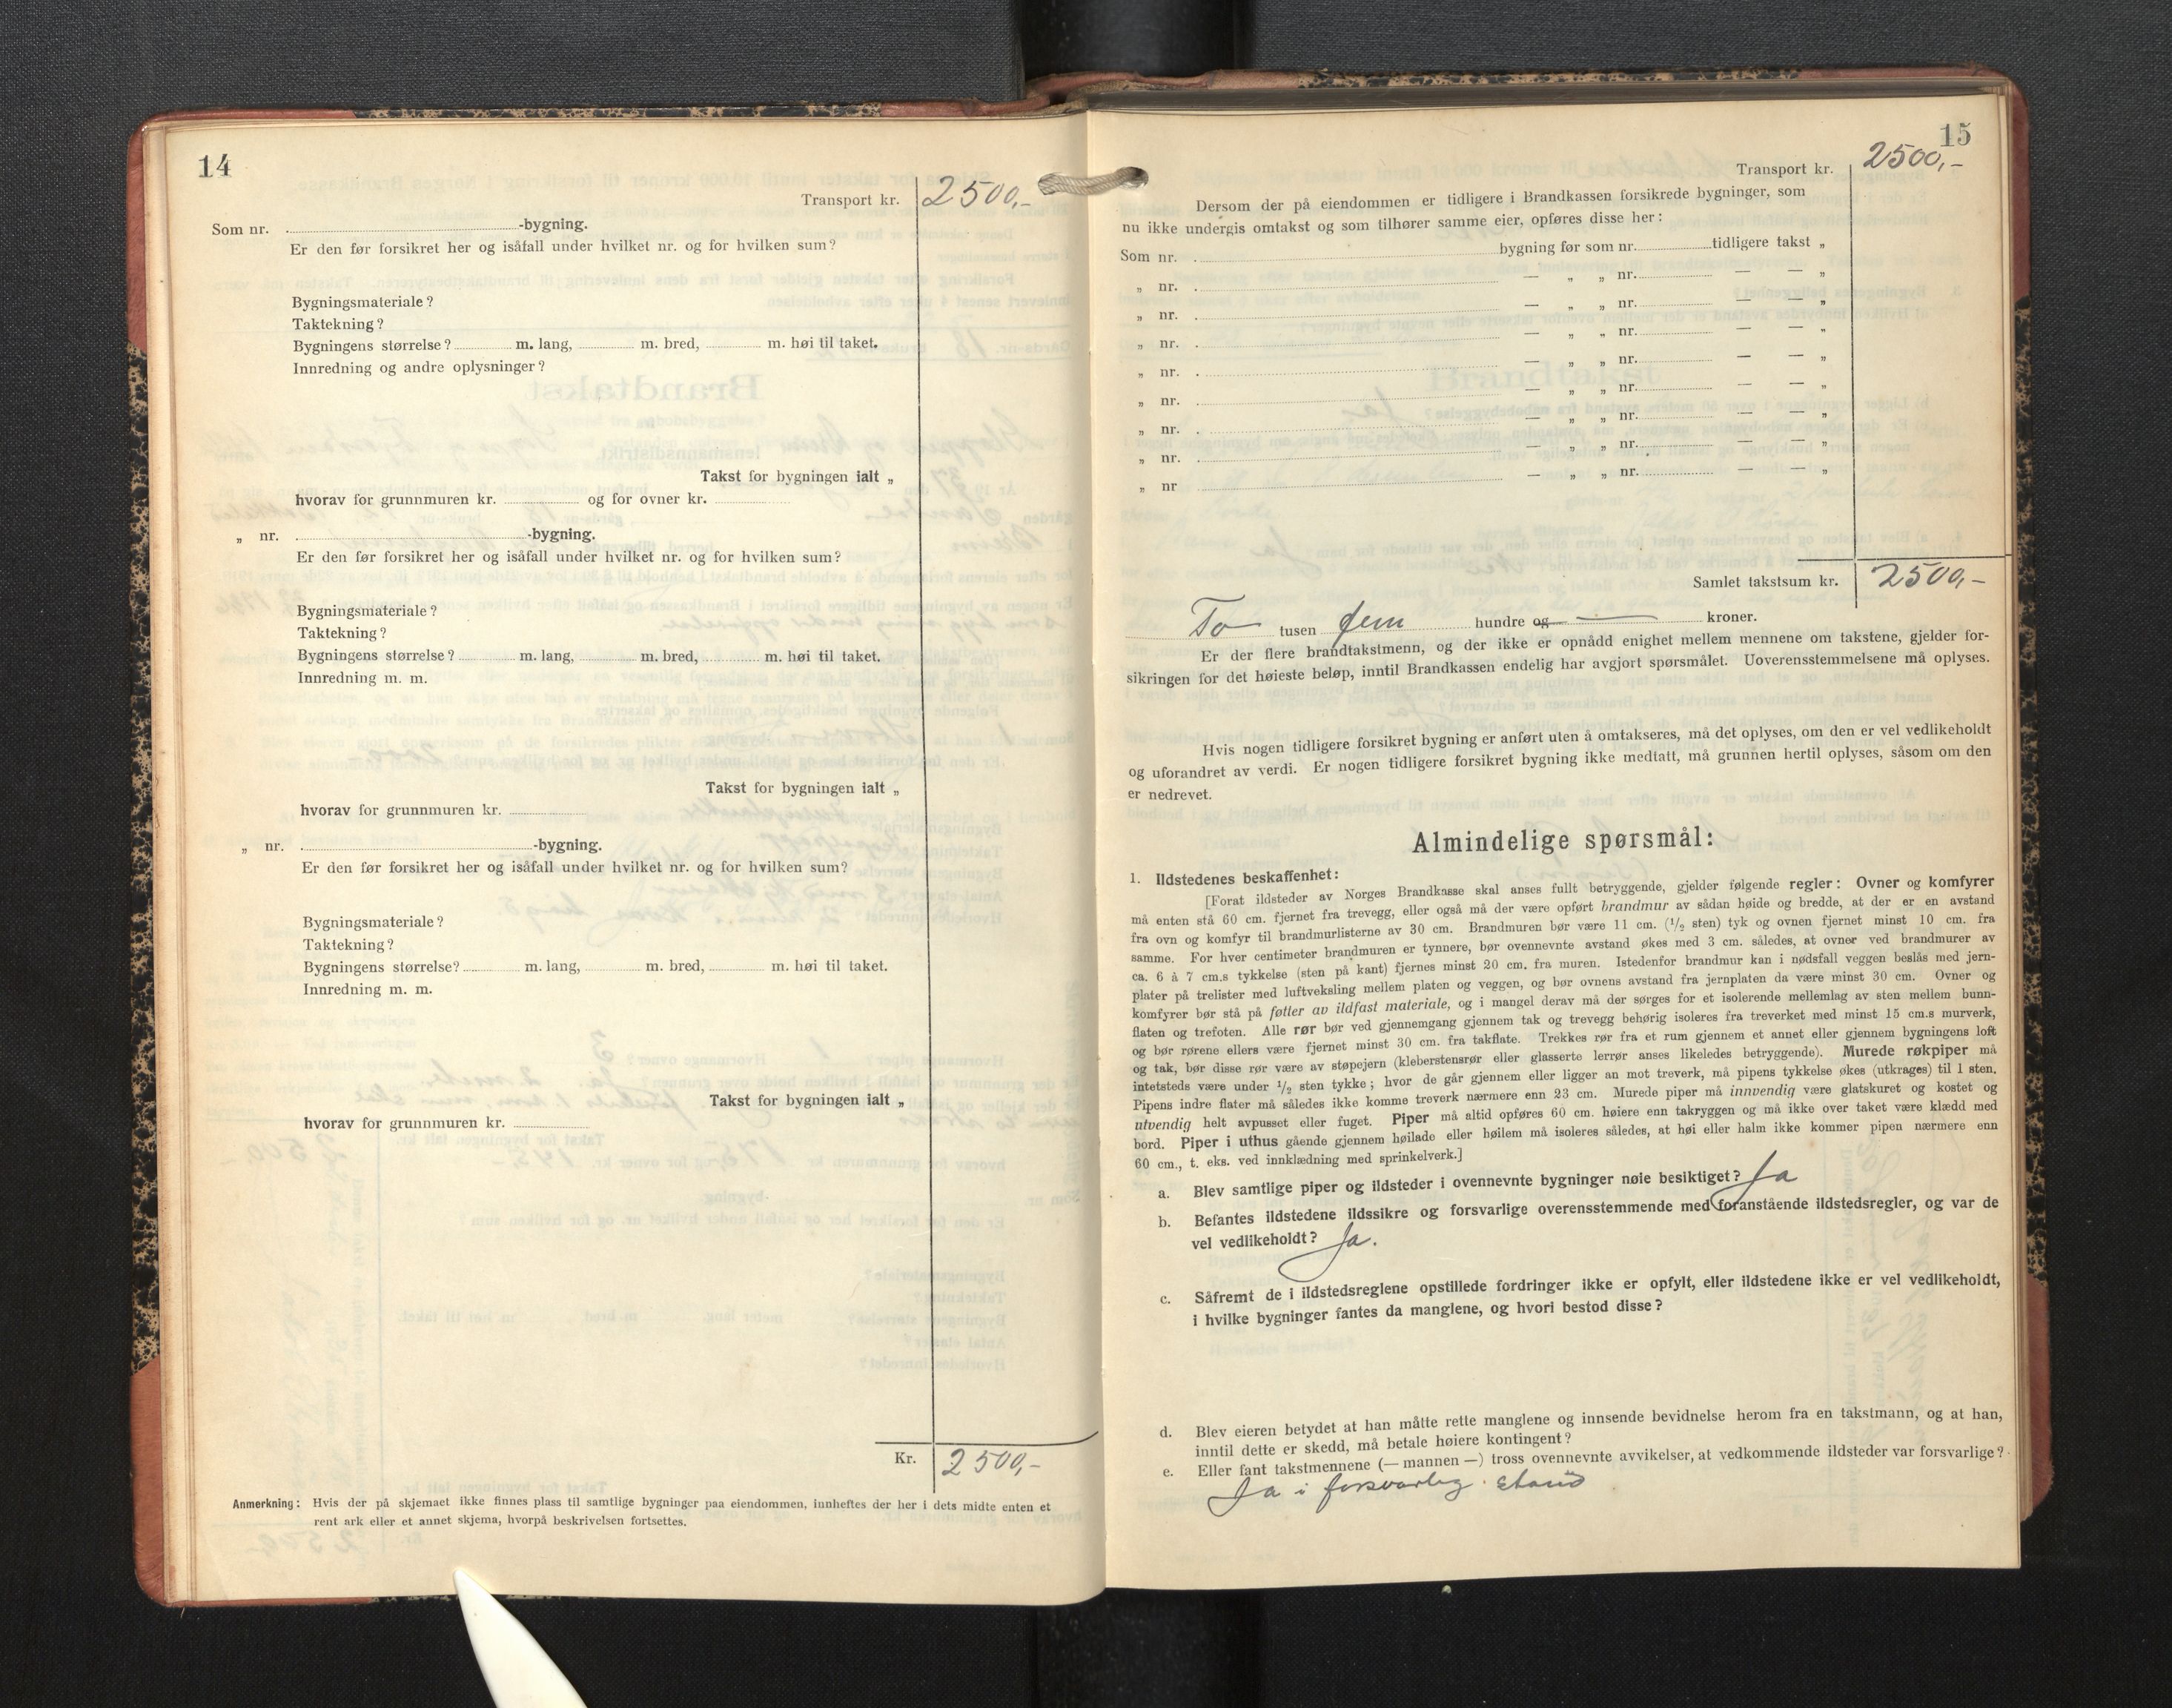 14
Transport kr. 2500,-
Som nr. -bygning.
Er den før forsikret her og isåfall under hvilket nr. og for hvilken sum?
Bygningsmateriale?
Taktekning?
Bygningens størrelse? m. lang, m. bred, m. høi til taket.
Innredning og andre oplysninger?
Takst for bygningen ialt „
hvorav for grunnmuren kr. og for ovner kr.
„ nr. -bygning.
Er den før forsikret her og isåfall under hvilket nr. og for hvilken sum?
Bygningsmateriale?
Taktekning?
Bygningens størrelse? m. lang, m. bred, m. høi til taket.
Innredning m. m.
Takst for bygningen ialt „
hvorav for grunnmuren kr.
„ nr. -bygning.
Er den før forsikret her og isåfall under hvilket nr. og for hvilken sum?
Bygningsmateriale?
Taktekning?
Bygningens størrelse? m. lang, m. bred, m. høi til taket.
Innredning m. m.
Takst for bygningen ialt „
hvorav for grunnmuren kr.
Kr. 2500,-
Anmerkning: Hvis der på skjemaet ikke finnes plass til samtlige bygninger paa eiendommen, innheftes der her i dets midte enten et
rent ark eller et annet skjema, hvorpå beskrivelsen fortsettes.
15
Transport kr. 2500,-
Dersom der på eiendommen er tidligere i Brandkassen forsikrede bygninger, som
nu ikke undergis omtakst og som tilhører samme eier, opføres disse her:
Som nr. bygning før som nr. tidligere takst „
„ nr. — „ „ nr. — — „
„ nr. — „ „ nr. — — „
„ nr. — „ „ nr. — — „
„ nr. — „ „ nr. — — „
„ nr. — „ „ nr. — — „
„ nr. — „ „ nr. — — „
„ nr. — „ „ nr. — — „
„ nr — „ „ nr. — — „
Samlet takstsum kr. 2500,-
To tusen fem hundre og — kroner.
Er der flere brandtakstmenn, og der ikke er opnådd enighet mellem mennene om takstene, gjelder for-
sikringen for det høieste beløp, inntil Brandkassen endelig har avgjort spørsmålet. Uoverensstemmelsene må oplyses.
Hvis nogen tidligere forsikret bygning er anført uten å omtakseres, må det oplyses, om den er vel vedlikeholdt
og uforandret av verdi. Er nogen tidligere forsikret bygning ikke medtatt, må grunnen hertil oplyses, såsom om den
er nedrevet.
Almindelige spørsmål:
1. Ildstedenes beskaffenhet:
[Forat ildsteder av Norges Brandkasse skal anses fullt betryggende, gjelder følgende regler: Ovner og komfyrer
må enten stå 60 cm. fjernet fra trevegg, eller også må der være opført brandmur av sådan høide og bredde, at der er en avstand
fra ovn og komfyr til brandmurlisterne av 30 cm. Brandmuren bør være 11 cm. (1/2 sten) tyk og ovnen fjernet minst 10 cm. fra
samme. For hver centimeter brandmuren er tynnere, bør ovennevnte avstand økes med 3 cm. således, at ovner ved brandmurer av
ca. 6 à 7 cm.s tykkelse (sten på kant) fjernes minst 20 cm. fra muren. Istedenfor brandmur kan i nødsfall veggen beslås med jern-
plater på trelister med luftveksling mellem platen og veggen, og bør ovnens avstand fra jernplaten da være minst 30 cm. Ovner og
komfyrer bør stå på føtter av ildfast materiale, og i mangel derav må der sørges for et isolerende mellemlag av sten mellem bunn-
flaten og trefoten. Alle rør bør ved gjennemgang gjennem tak og trevegg behørig isoleres fra treverket med minst 15 cm.s murverk,
og bør rørene ellers være fjernet minst 30 cm. fra takflate. Trekkes rør fra et rum gjennem et annet eller gjennem bygningens loft
og tak, bør disse rør være av støpejern (kleberstensrør eller glasserte lerrør anses likeledes betryggende). Murede røkpiper må
intetsteds være under 1/2 sten tykke; hvor de går gjennem eller ligger an mot treverk, må pipens tykkelse økes (utkrages) til 1 sten.
Pipens indre flater må således ikke komme treverk nærmere enn 23 cm. Murede piper må innvendig være glatskuret og kostet og
utvendig helt avpusset eller fuget. Piper må altid opføres 60 cm. høiere enn takryggen og må ikke over taket være klædd med
bord. Piper i uthus gående gjennem høilade eller høilem må isoleres således, at høi eller halm ikke kommer pipen nærmere enn
60 cm., t. eks. ved innklædning med sprinkelverk.]
a. Blev samtlige piper og ildsteder i ovennevnte bygninger nøie besiktiget? Ja
b. Befantes ildstedene ildssikre og forsvarlige overensstemmende med foranstående ildstedsregler, og var de
vel vedlikeholdt? Ja.
c. Såfremt de i ildstedsreglene opstillede fordringer ikke er opfylt, eller ildstedene ikke er vel vedlikeholdt,
i hvilke bygninger fantes da manglene, og hvori bestod disse?
d. Blev eieren betydet at han måtte rette manglene og innsende bevidnelse herom fra en takstmann, og at han,
inntil dette er skedd, må betale høiere kontingent?
e. Eller fant takstmennene (— mannen —) tross ovennevnte avvikelser, at vedkommende ildsteder var forsvarlige?
Ja i forsvarlig stand